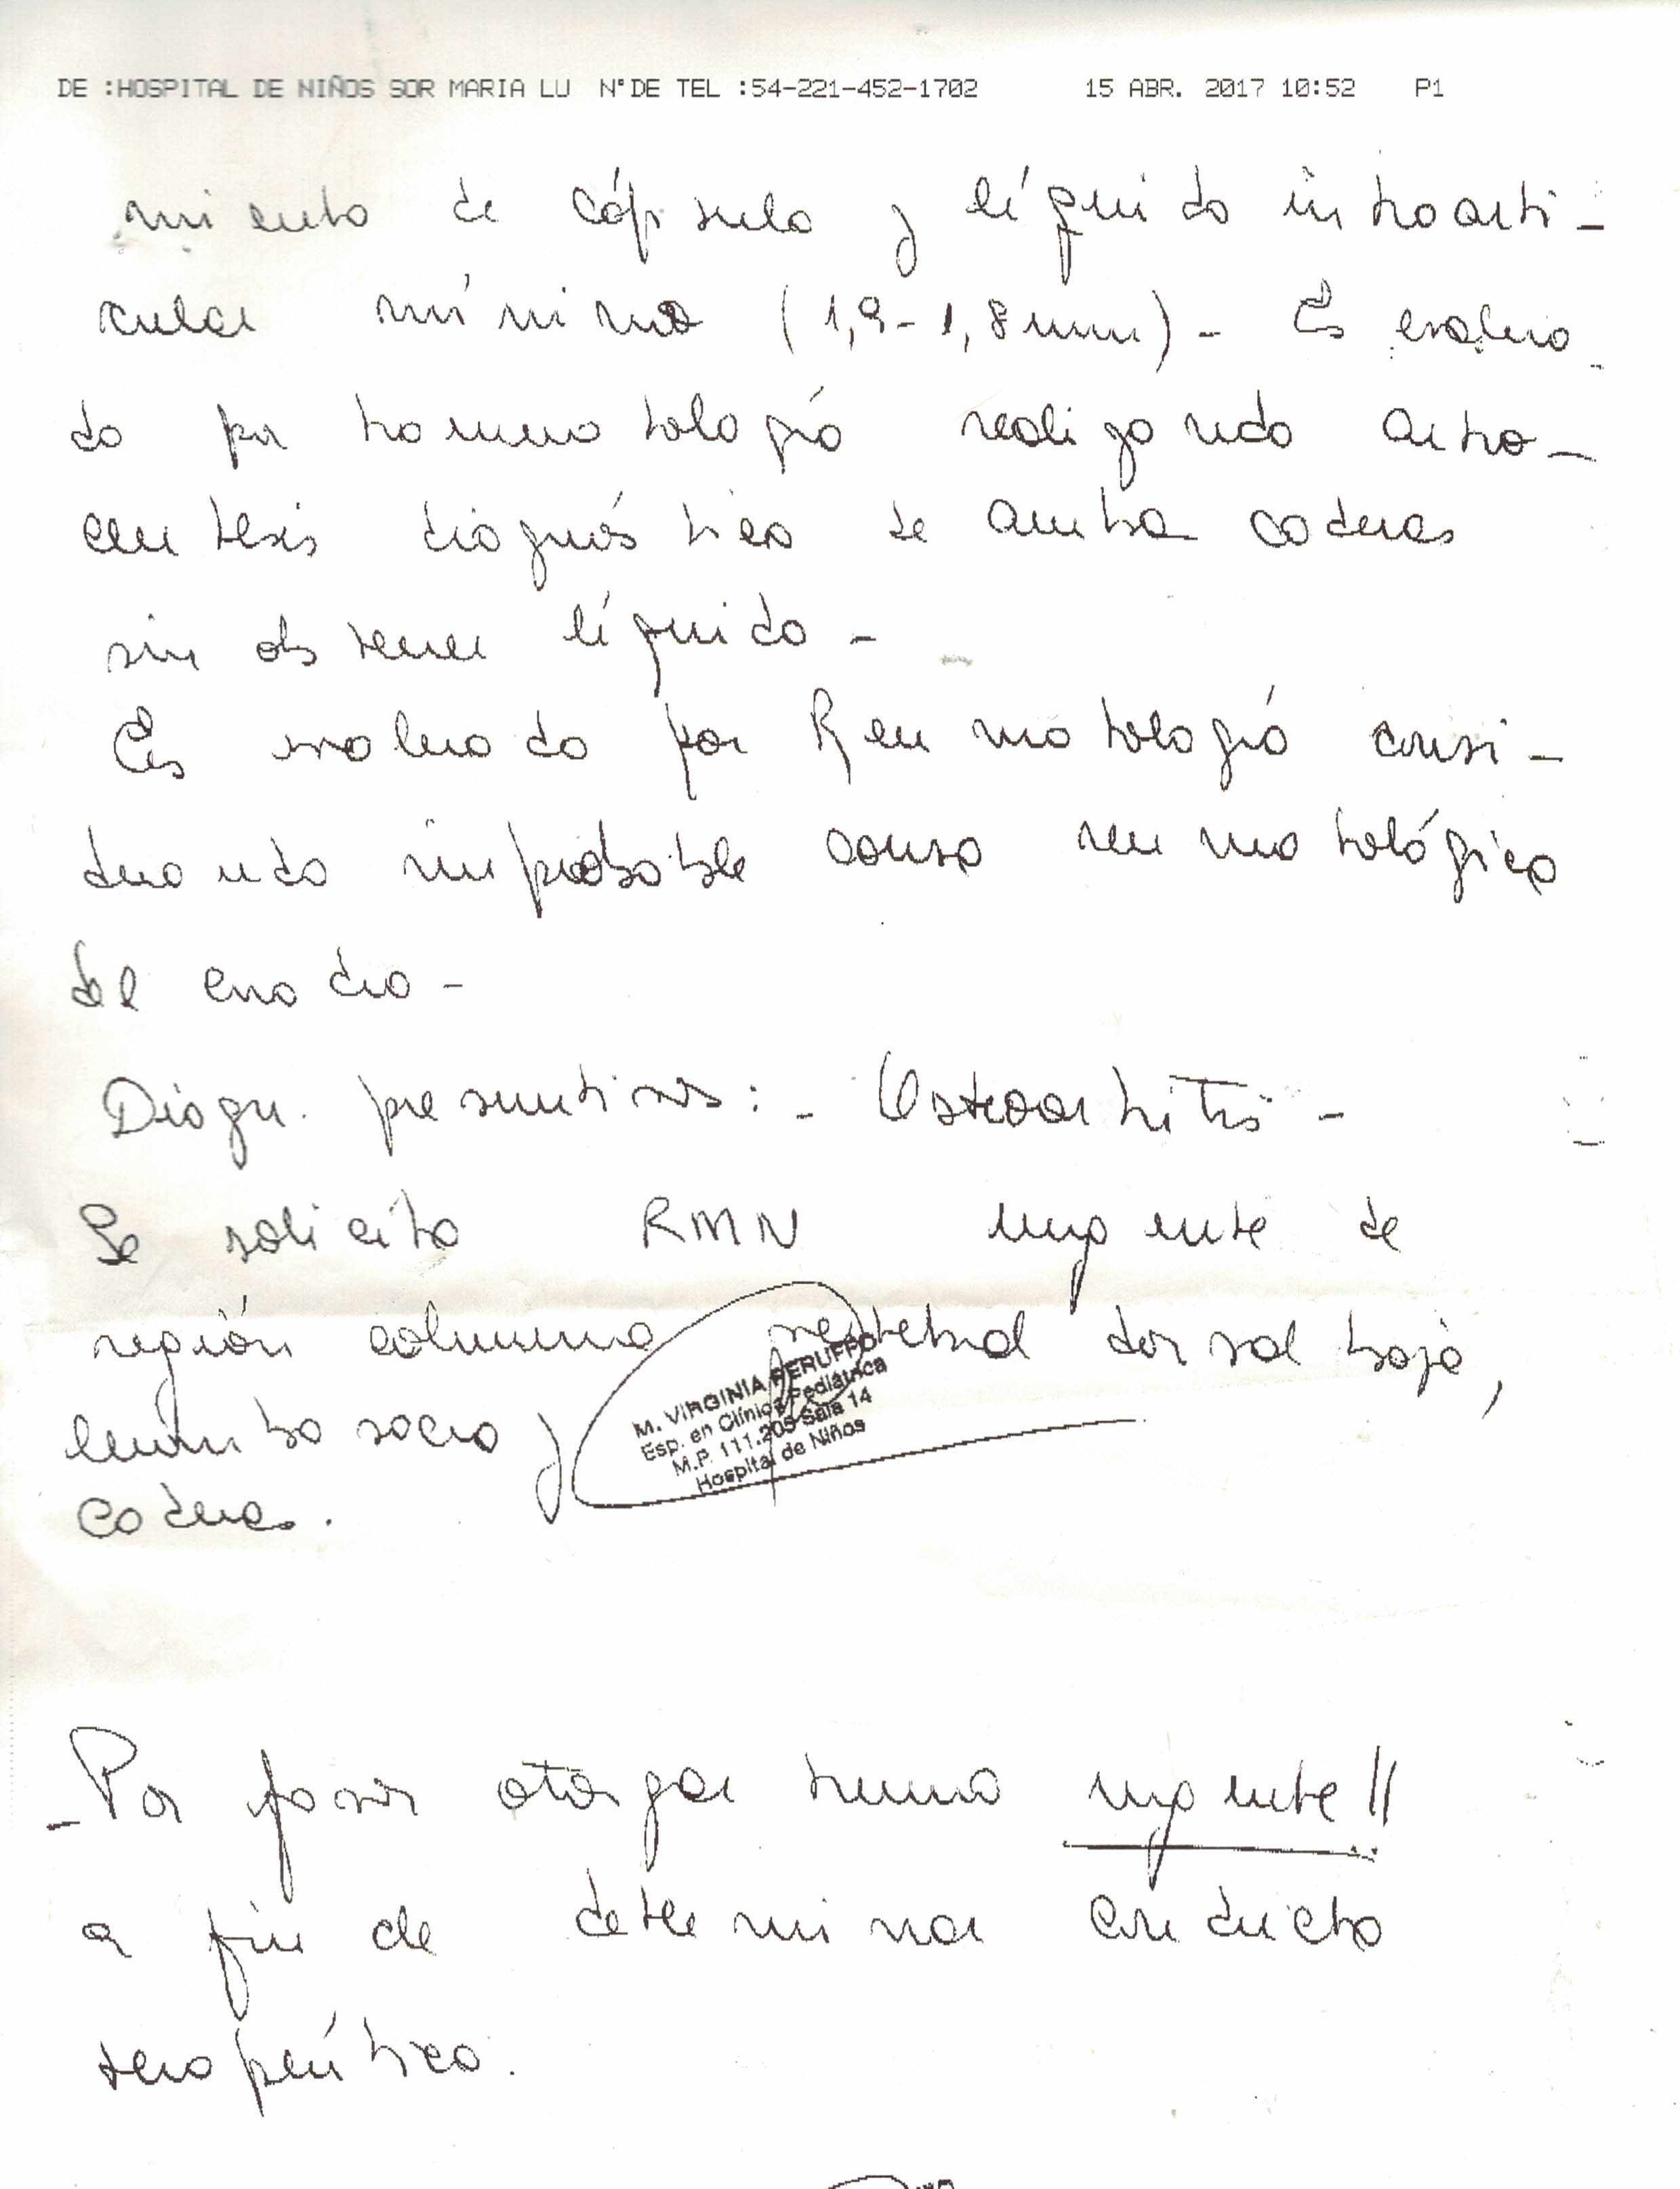 DE :HOSPITAL DE NIÑOS SOR MARIA LU N°DE TEL :54-221-452-1702 15 ABR. 2017 10:52 P1
miento de cápsula y líquido intraarti-
cular mínimo (1,9-1,8mm)- Es evalua-
do por traumatología realizando artro-
centesis diagnóstica de ambas caderas
sin obtener líquido-
Es evaluado por Reumatología consi-
derando improbable causa reumatológica
del cuadro-
Diagn. presuntivos: - Osteoartritis -
Se solicita RMN urgente de
región columna vertebral dorsal baja,
lumbo sacra y
caderas.
M. VIRGINIA PERUFFO
Esp. en Clínica Pediátrica
M.P. 111.205 Sala 14
Hospital de Niños
-Por favor otorgar turno urgente!!
a fin de determinar conducta
terapéutica.